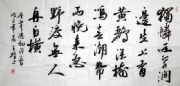 獨憐幽草澗
邊生上有
黃鸝深樹
鳴春潮帶
雨晚來急
野渡無人
舟自橫